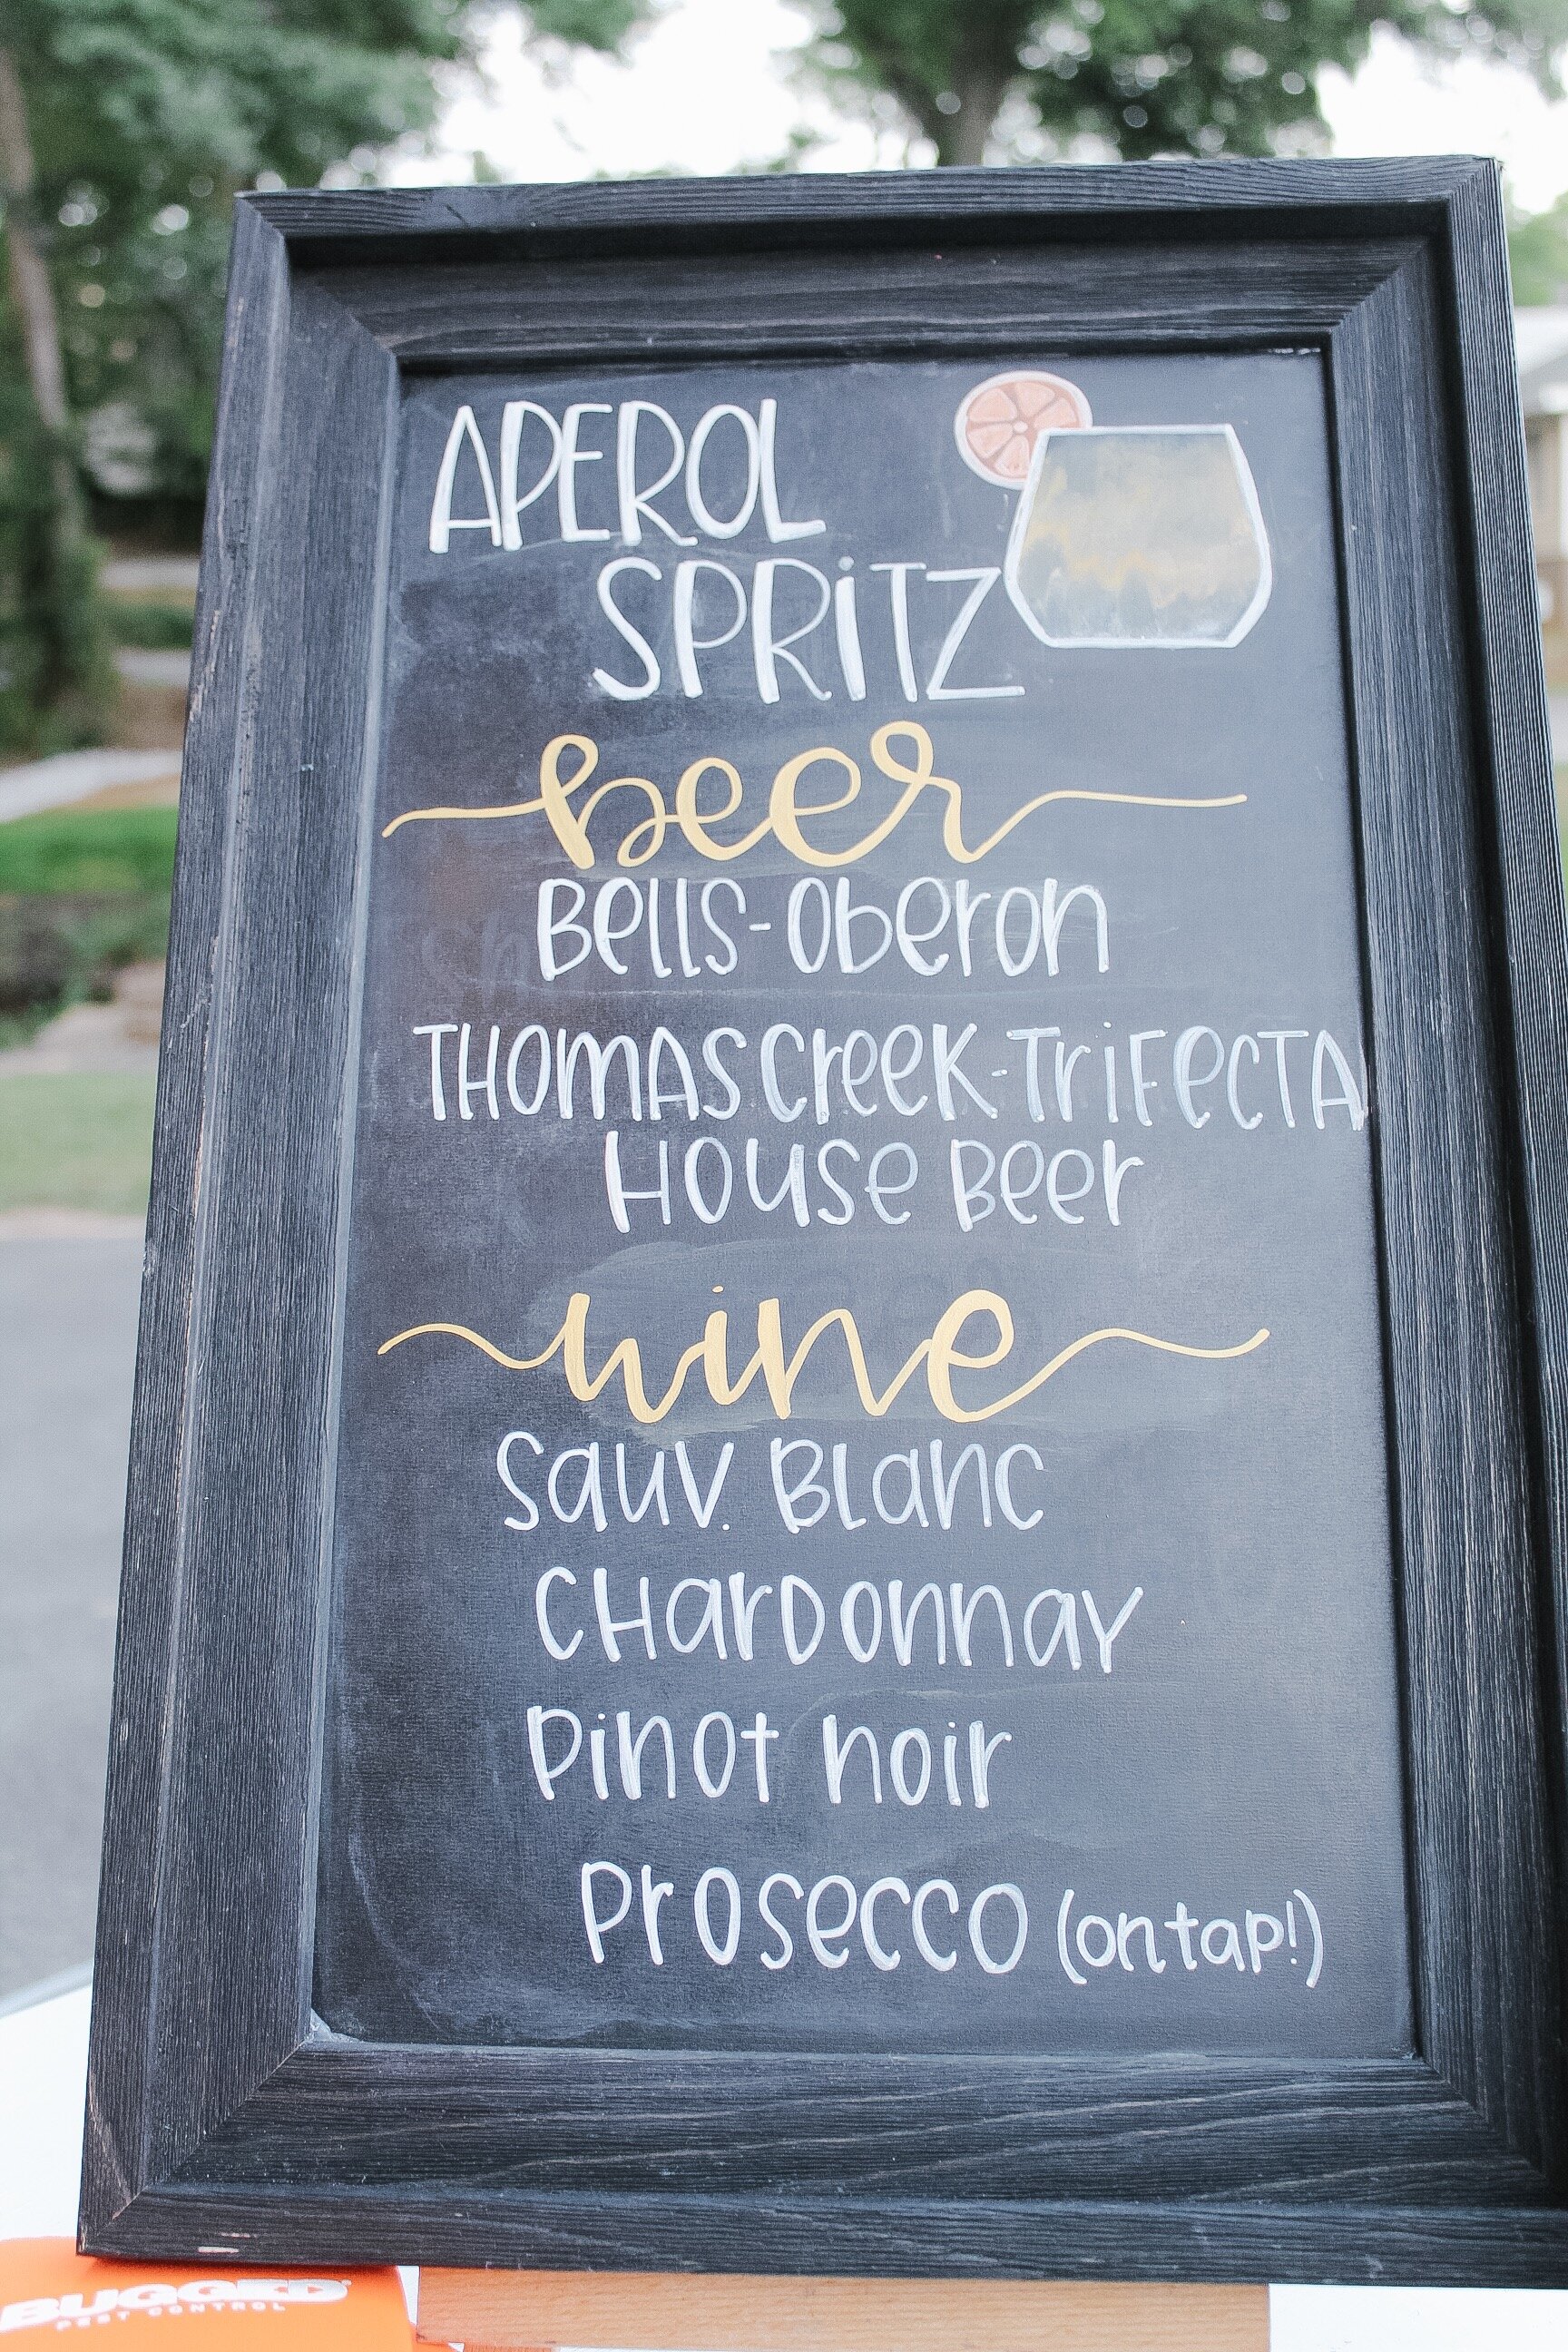 APEROL
SPRITZ
beer
Bells-Oberon
THOMAS Creek-TriFecTA
House Beer
wine
Sauv. Blanc
CHarDonnay
Pinot noir
Prosecco (on tap!)
BUGGED
PEST CONTROL